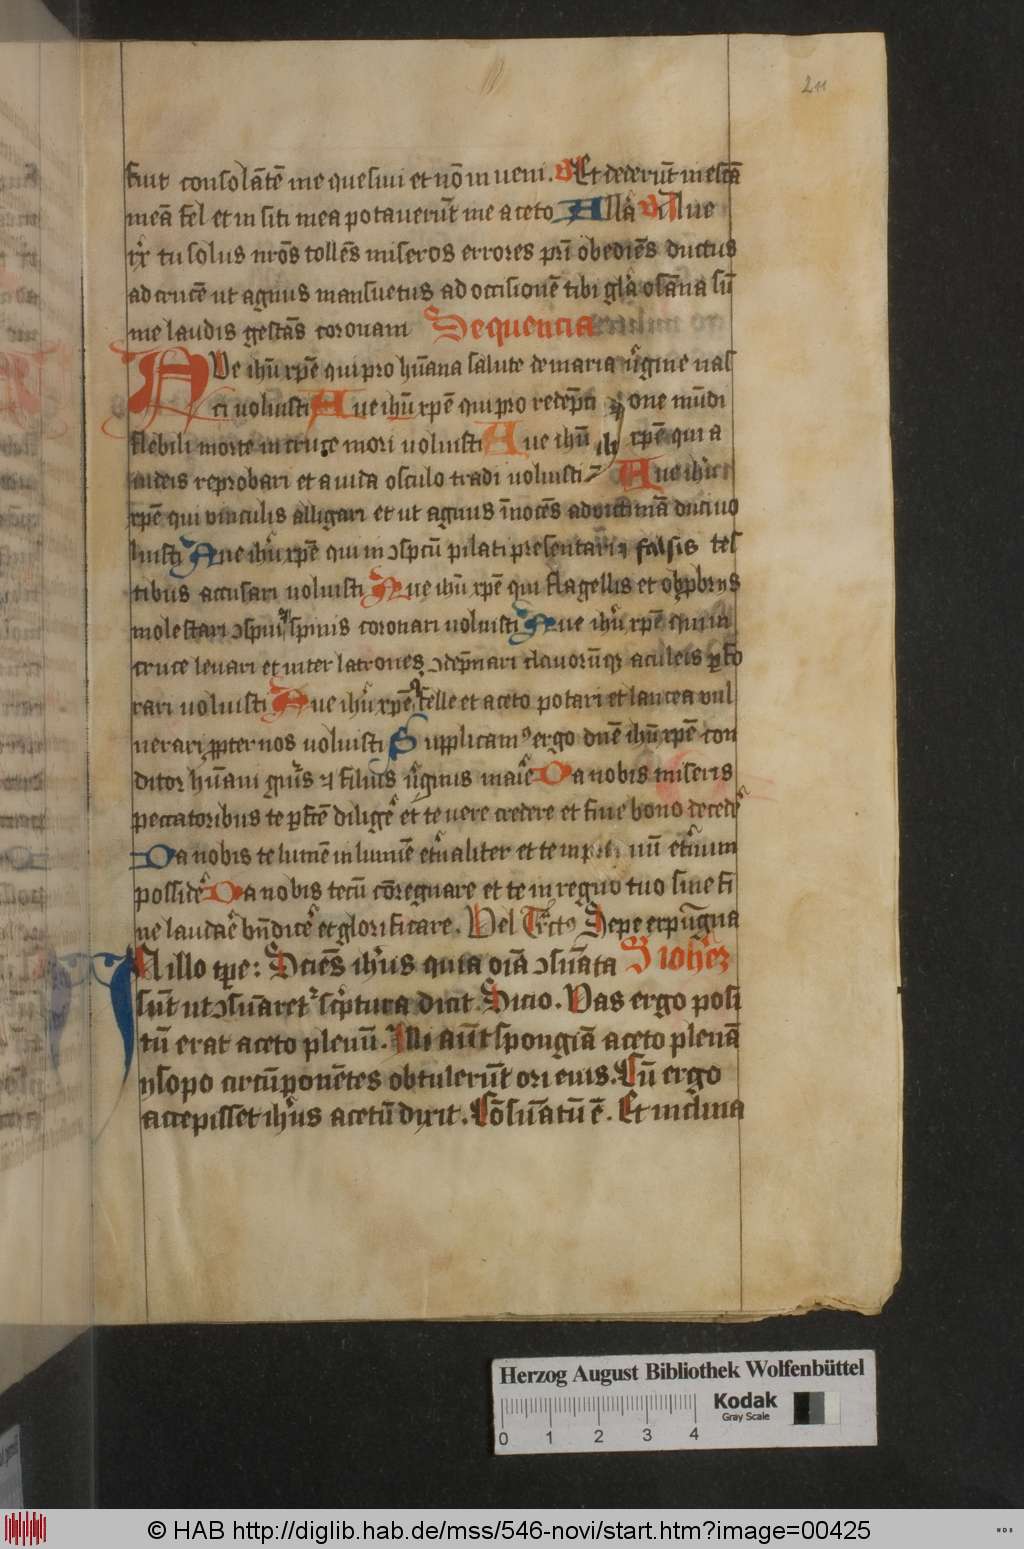 211
fuit consolātē me quesiui et nō inueni. V Et dederūt in escā
meā fel et in siti mea potauerūt me aceto Allā V
tu solus nr̄os tollēs miseros errores pr̄i obediēs ductus
ad crucē ut agnus mansuetus ad occisionē tibi glā osāna
me laudis gestās coronam Sequencia
AVe ihū xpē qui pro hūana salute de maria uͥgine nas
ci uoluisti Aue ihū xpē qui pro redēpti one mūdi
flebili morte in cruce mori uoluisti Aue ihū xpē qui a
iudeis reprobari et a iuda osculo tradi uoluisti Aue
xpē qui vinculis alligari et ut agnus īnocēs ad duci uo
luisti Aue ihū xpē qui in ꝯspcū pilati presentari ⁊ falsis tes
tibus accusari uoluisti Aue ihū xpē qui flagellis et obprbrijs
molestari spinis coronari uoluisti Aue ihū xpē qui in
cruce leuari et inter latrones ꝯdēpnari clauorūqꝫ aculeis ꝑfo
rari uoluisti Aue ihū xpē felle et aceto potari et lancea vul
nerari ꝓpter nos uoluisti Supplicamꝰ ergo dnē ihū xpē con
ditor hūani gnīs ⁊ filius uͥginis marie Da nobis miseris
peccatoribus te ꝑfcē diligē et te uere credere et fine bono decedē
Da nobis te lumē in lumīe etn̄aliter et te etn̄um
possidē Da nobis tecū cōregnare et te in regno tuo sine fi
ne laudaē bn̄dicē et glorificare. Vel Tctꝰ Sepe expūgna
IN illo tꝑe: Sciēs ihūs quia oīa ꝯsūata S iohēs
sūt ut ꝯsūaret scptura dicit. Sicio. Vas ergo posi
tū erat aceto plenū. Illi aūt spongiā aceto plenā
ysopo circūponētes obtulerūt ori eius. Cū ergo
accepisset ihūs acetū dixit. Cōsūatū ē. Et inclina
Herzog August Bibliothek Wolfenbüttel
Kodak
Gray Scale
0 1 2 3 4
© HAB http://diglib.hab.de/mss/546-novi/start.htm?image=00425